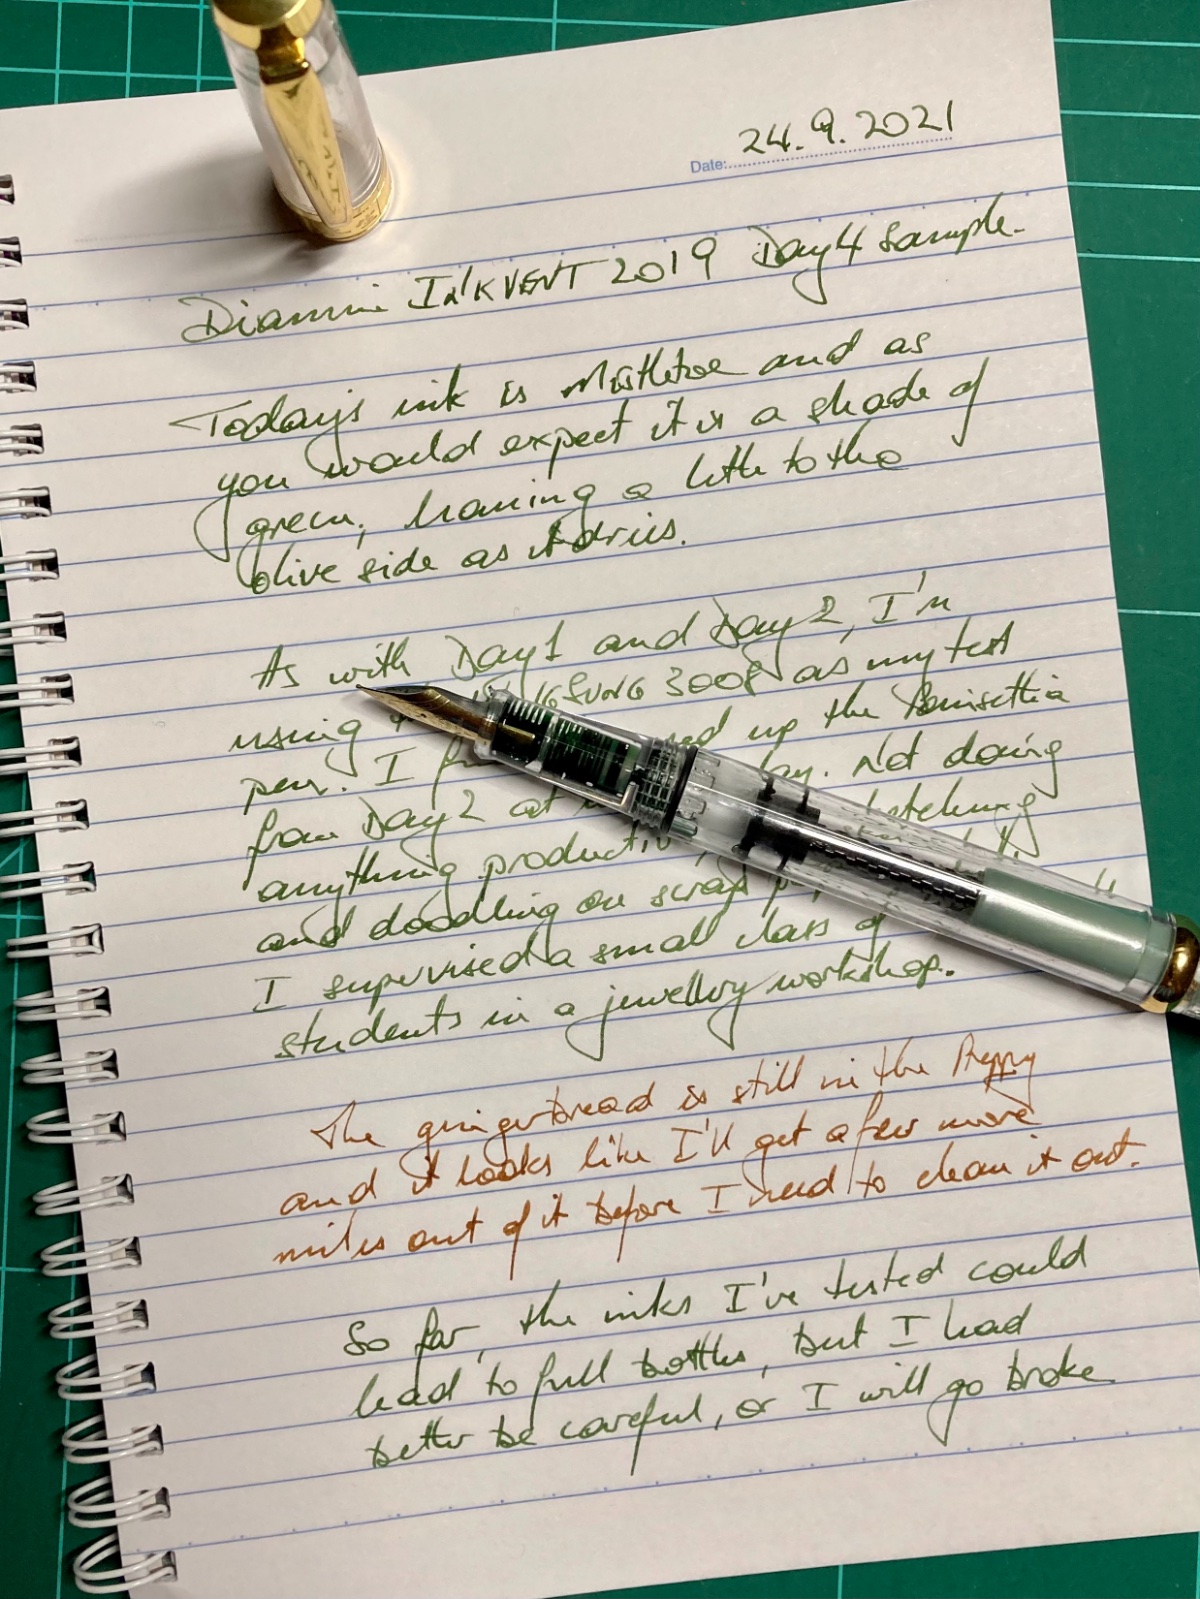 24.9.2021
Date:
Diamine INKVENT 2019 Day 4 Sample.
Today's ink is Mistletoe and as
you would expect it is a shade of
green, leaning a little to the
olive side as it dries.
As with Day 1 and Day 2, I'm
using 3008 as my test
pen. I up the Poinsettia
from Day 2 at day. Not doing
anything
and doodling on scrap
I supervised a small class of
students in a jewellry workshop.
The gingerbread is still in the Preppy
and it looks like I'll get a few more
miles out of it before I need to clean it out.
So far, the inks I've tested could
lead to full bottles, but I had
better be careful, or I will go broke